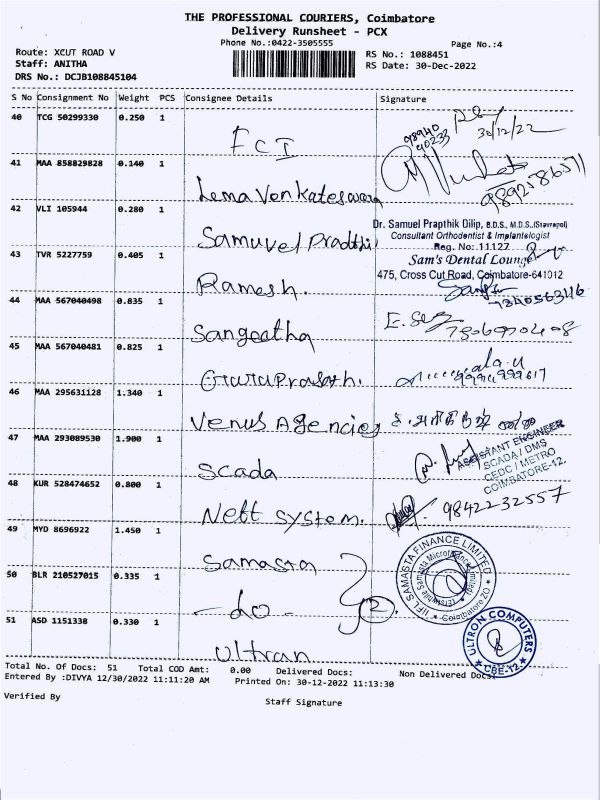 THE PROFESSIONAL COURIERS, Coimbatore
Delivery Runsheet - PCX
Phone No.:0422-3505555
Page No.:4
Route: XCUT ROAD V
Staff: ANITHA
DRS No.: DCJB108845104
RS No.: 1088451
RS Date: 30-Dec-2022
S No Consignment No Weight PCS Consignee Details Signature
40 TCG 50299330 0.250 1 FCI 98940 90233 30/12/22
41 MAA 858829828 0.140 1 Lema Venkateswara
42 VLI 105944 0.280 1 Samuvel Pradthi
Dr. Samuel Prapthik Dilip, B.D.S., M.D.S.,(Stavropol)
Consultant Orthodontist & Implantologist
Reg. No: 11127
43 TVR 5227759 0.405 1 Ramesh.
Sam's Dental Lounge
475, Cross Cut Road, Coimbatore-641012
44 MAA 567040498 0.835 1 Sangeetha
45 MAA 567040481 0.825 1 Guruprasath.
46 MAA 295631128 1.340 1 Venus Agencies
47 MAA 293089530 1.900 1 Scada
ASSISTANT ENGINEER
SCADA / DMS
CEDC / METRO
COIMBATORE-12.
48 KUR 528474652 0.800 1 Nett System. 9842232557
49 MYD 8696922 1.450 1 Samasta
IIFL SAMASTA FINANCE LIMITED
Coimbatore ZO
50 BLR 210527015 0.335 1 -do- 2.
51 ASD 1151338 0.330 1 Ultran
ULTRON COMPUTERS
CBE-12
Total No. Of Docs: 51 Total COD Amt: 0.00 Delivered Docs: Non Delivered Docs:
Entered By :DIVYA 12/30/2022 11:11:20 AM Printed On: 30-12-2022 11:13:30
Verified By
Staff Signature